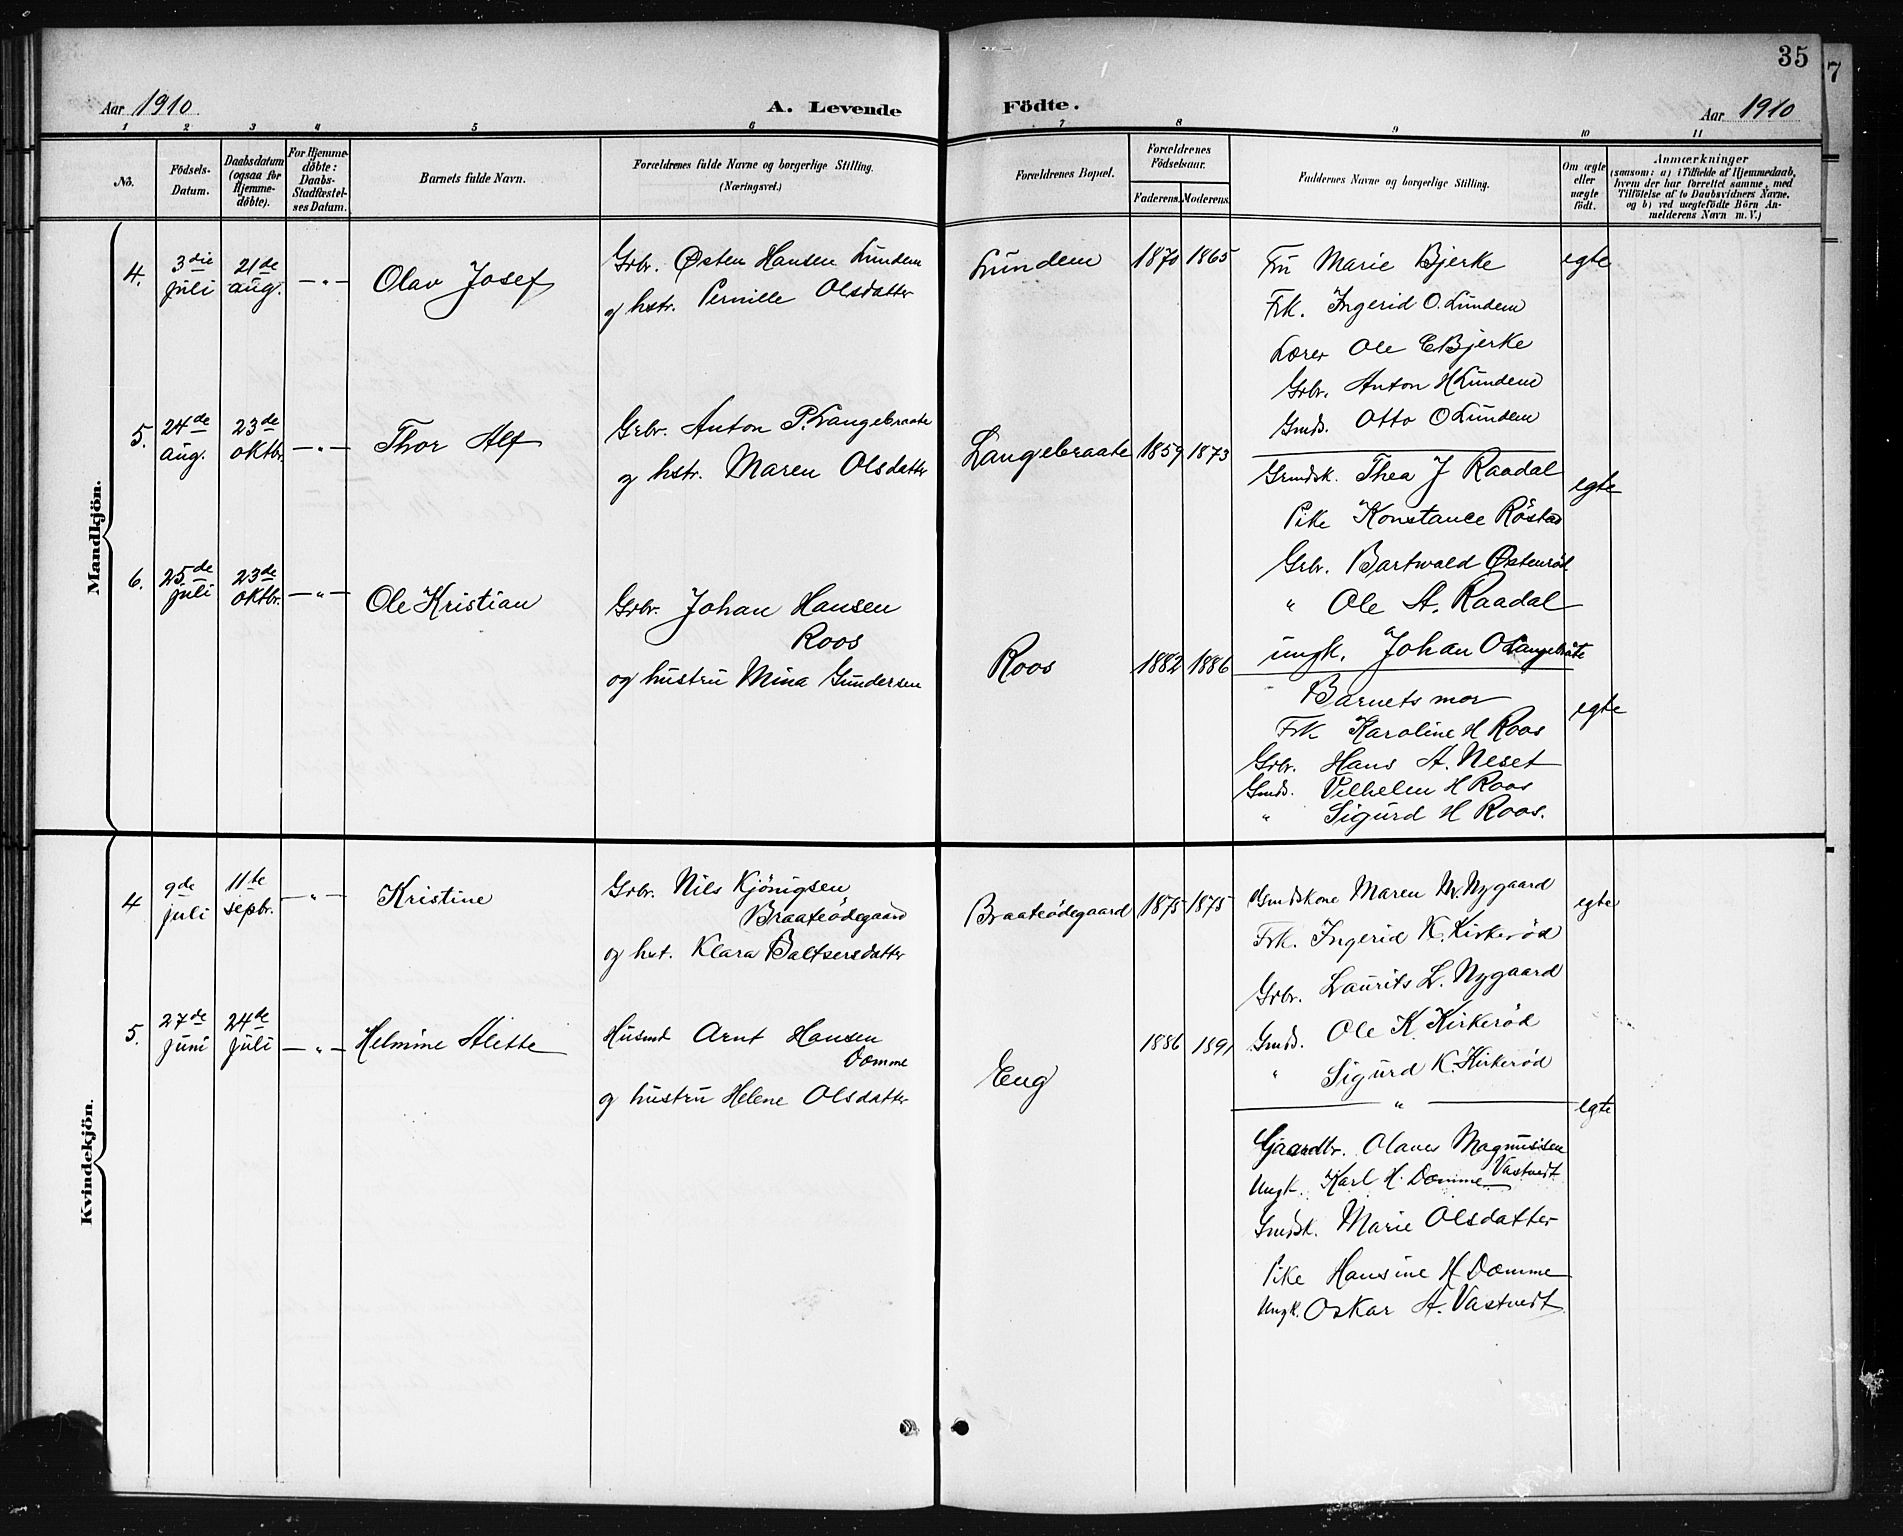 35
7
Aar 1910
A. Levende
Födte.
Aar 1910
1 2 3 4 5 6 7 8 9 10 11
No.
Födsels-
Datum.
Daabsdatum
(ogsaa for
Hjemme-
döbte).
For Hjemme-
döbte:
Daabs-
Stadfæstel-
ses Datum.
Barnets fulde Navn.
Forældrenes fulde Navne og borgerlige Stilling.
(Næringsvei.)
Forældrenes Bopæl.
Forældrenes
Födselsaar.
Faderens. Moderens.
Faddernes Navne og borgerlige Stilling.
Om ægte
eller
uægte
födt.
Anmærkninger
(saasom: a) i Tilfælde af Hjemmedaab,
hvem der har forrettet samme, med
Tilföielse af to Daabsvidners Navne,
og b) ved uægtefödte Börn An-
melderens Navn m. V.)
Mandkjön.
4. 3die juli 21de aug. —"— Olav Josef
Grbr. Østen Hansen Lundem
og hstr. Pernille Olsdatter
Lundem 1870 1865
Fru Marie Bjerke
Frk. Ingerid O. Lundem
Lærer Ole E Bjerke
Grbr. Anton H Lundem
Gmds. Otto O Lundem
egte
5. 24de aug. 23de oktbr. —"— Thor Alf
Grbr. Anton P. Langebraate
og hstr. Maren Olsdatter
Langebraate 1859 1873
Grmdsk. Thea J Raadal
Pike Konstance Röstad
Grbr. Bartwald Østenröd
" Ole A. Raadal
ungk. Johan O Langebråte
egte
6. 25de juli 23de oktbr. —"— Ole Kristian
Grbr. Johan Hansen
Roos
og hustru Mina Gundersen
Roos 1882 1886
Barnets mor
Frk Karoline H Roos
Grbr. Hans A. Neset
Gmds. Vilhelm H Roos
" Sigurd H Roos.
egte
Kvindekjön.
4 9de juli 11te sepbr. —"— Kristine
Grbr. Nils Kjönigsen
Braateödegaard
og hst. Klara Baltsersdatter
Braateödegaard 1875 1875
Gmdskone Maren M. Nygaard
Frk. Ingerid K. Kirkeröd
Grbr. Laurits L. Nygaard
Gmds. Ole K Kirkeröd
" Sigurd K. Kirkeröd
egte
5. 27de juni 24de juli —"— Helmine Alette
Husmd Arnt Hansen
Domme
og hustru Helene Olsdatter
Eng 1886 1891
"
Gjaardbr. Olaves Magnussen
Vastvedt
Ungk. Karl H. Domme
Gmdsk. Marie Olsdatter
Pike Hansine H Domme
Ungk. Oskar A. Vastvedt
egte